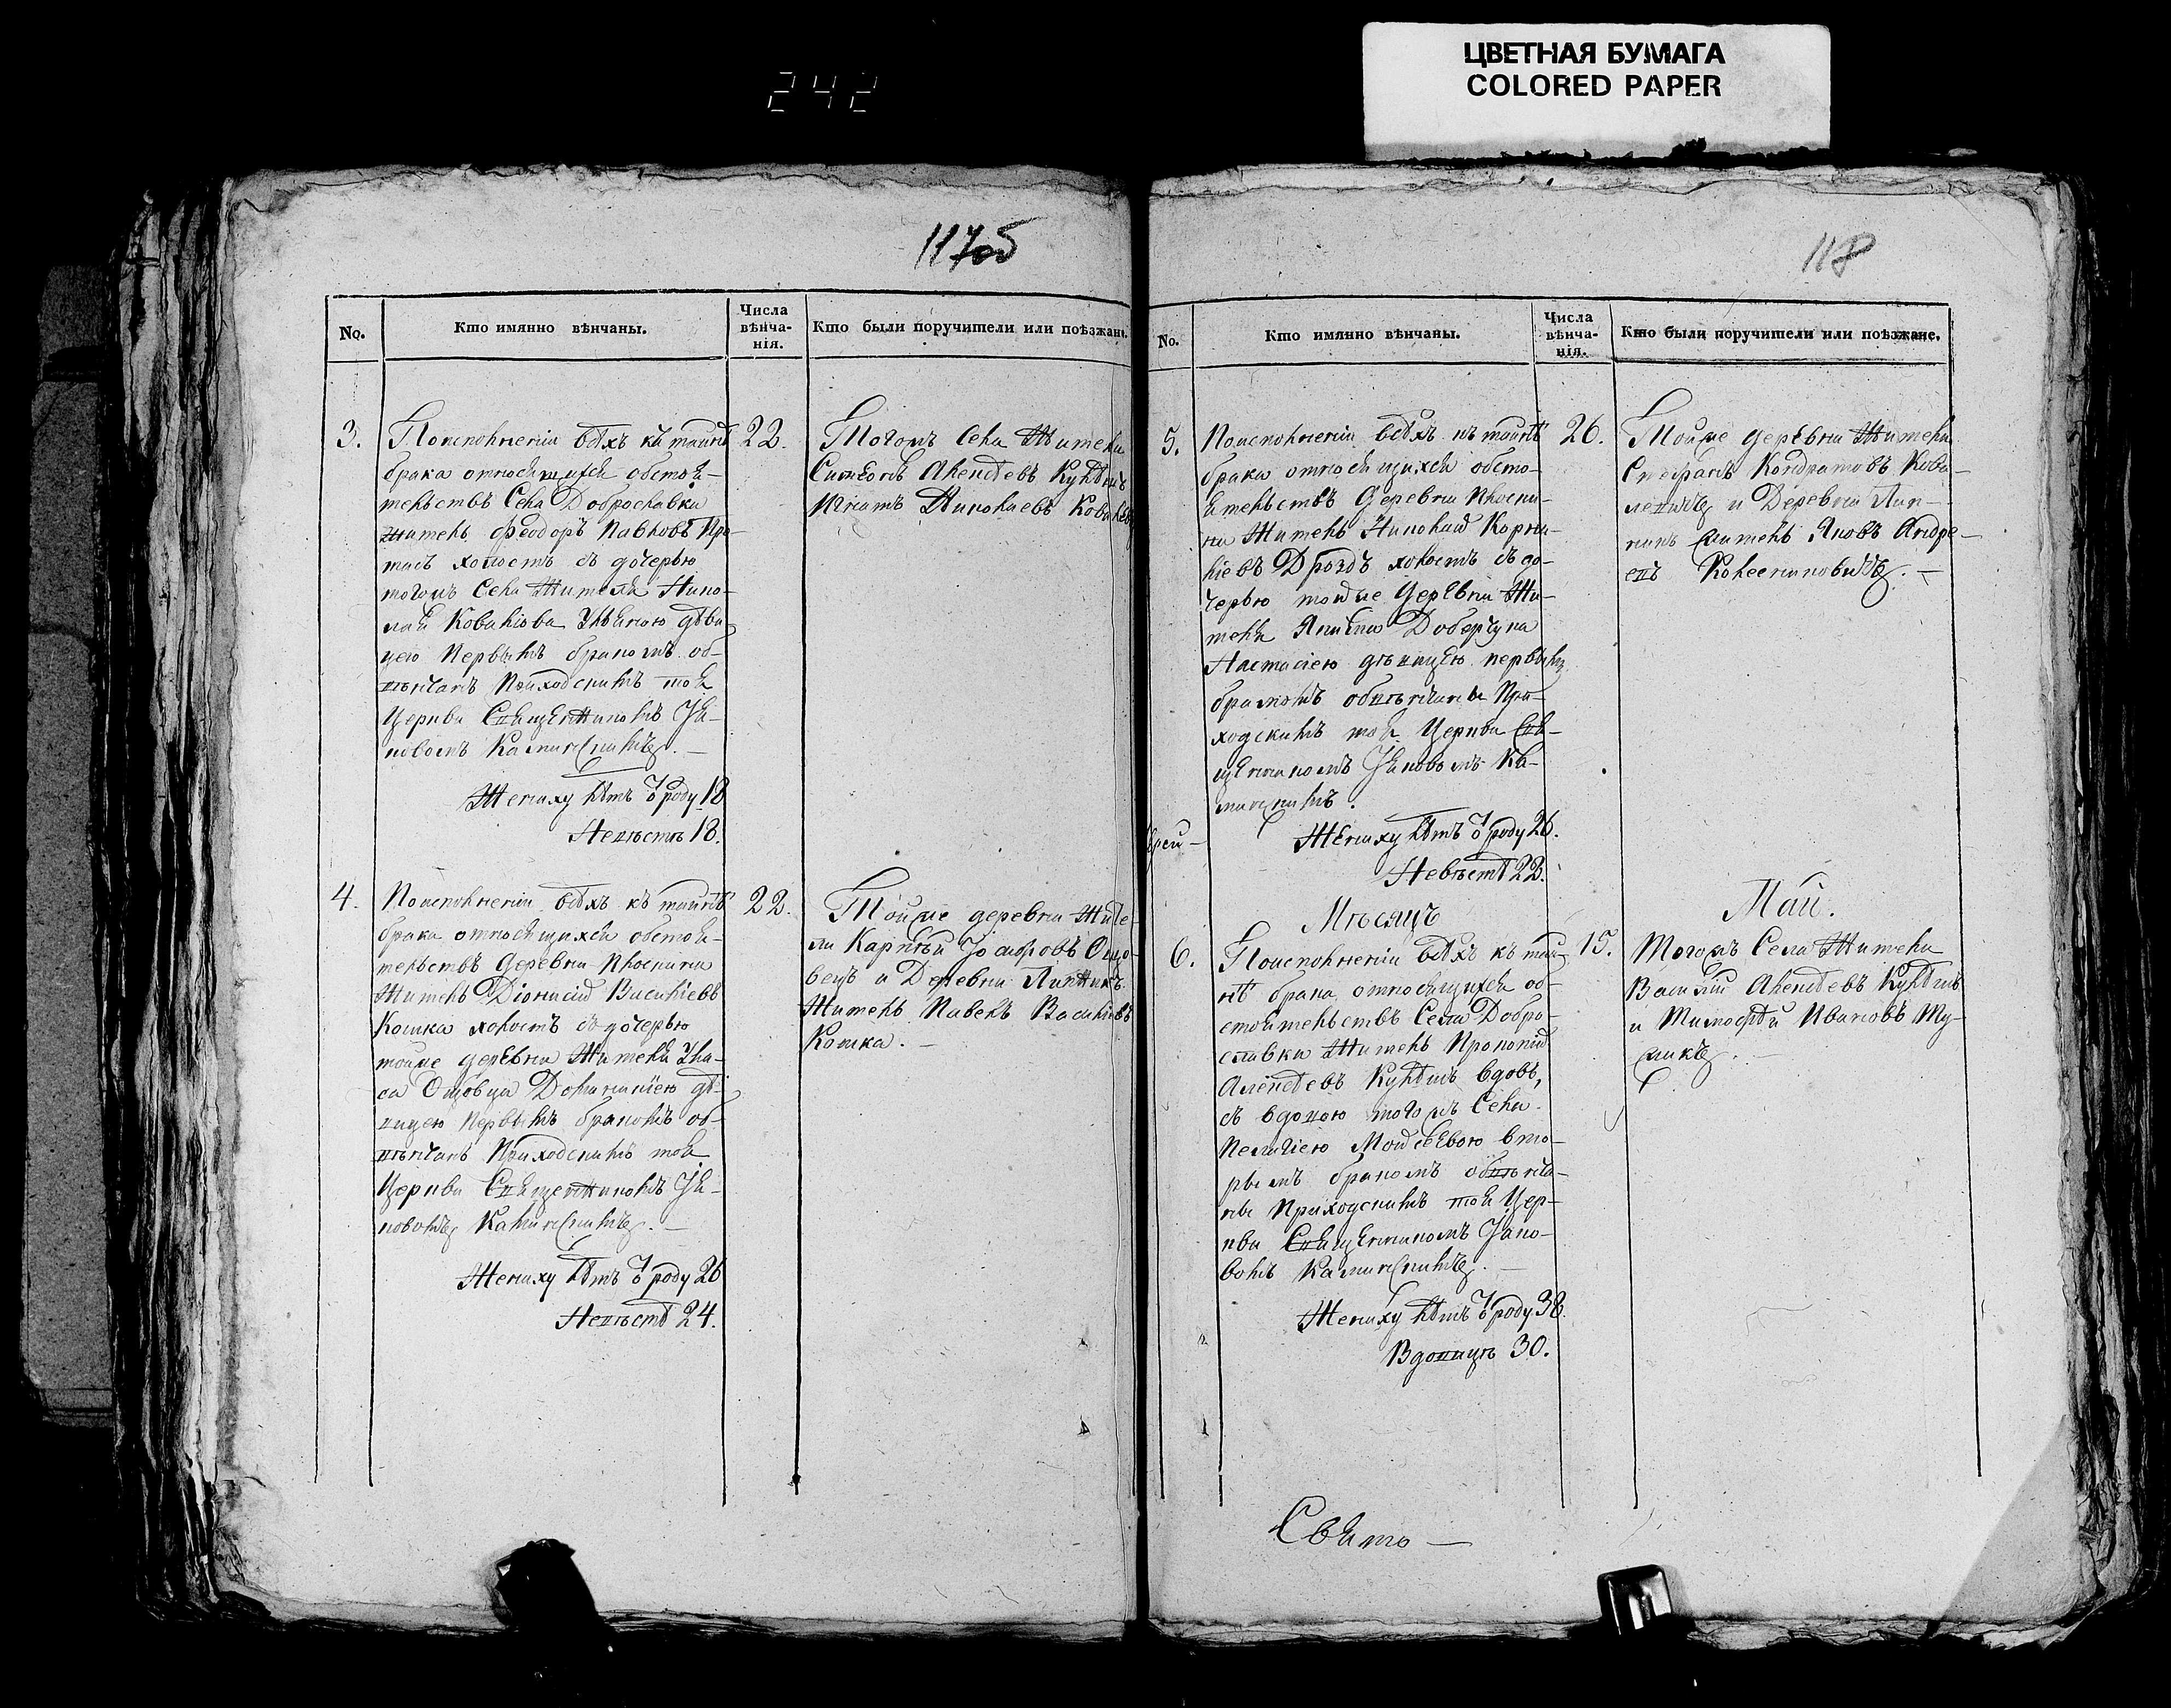 ЦВЕТНАЯ БУМАГА
COLORED PAPER
242
117об
No.
Кто имянно вѣнчаны.
Числа вѣнча-
нія.
Кто были поручители или поѣзжане.
3.
По исполненіи всѣхъ къ таинѣ
брака относящихся обстоя-
тельствъ Села Доброславки
житель Феодоръ Павловъ Про-
тасъ холостъ съ дочерью
тогожъ Села Жителя Нико-
лая Ковалюва Уліяною дѣви-
цею первымъ бракомъ об-
вѣнчанъ Приходскимъ тоя
Церкви Священникомъ Іа-
ковомъ Каминскимъ. —
Жениху лѣтъ ѿ роду 18
Невѣстѣ 18.
22.
Тогожъ Села Жители
Симеонъ Алексѣевъ
Игнатъ Николаевъ
4.
По исполненіи всѣхъ къ таинѣ
брака относящихся обстоя-
тельствъ Деревни Плоскини
Житель Діонисій Василіевъ
Кошка холостъ съ дочерью
тойже деревни Жителя
Ощовца Доминикіею дѣ-
вицею первымъ бракомъ об-
вѣнчанъ Приходскимъ тоя
Церкви Священникомъ Іа-
ковомъ Каминскимъ. —
Жениху лѣтъ ѿ роду 26
Невѣстѣ 24.
22.
Тойже деревни Жите-
ли Карпъ Ощо-
вецъ и Деревни Липникъ
Житель Павелъ Василіевъ
Кошка. —
118
No.
Кто имянно вѣнчаны.
Числа вѣнча-
нія.
Кто были поручители или поѣзжане.
5.
По исполненіи всѣхъ къ таинѣ
брака относящихся обсто-
ятельствъ Деревни Плоски-
ни Житель Николай Корни-
ліевъ Дроздъ холостъ съ до-
черью тойже Деревни Жи-
теля Доберчука
Настасіею дѣвицею первымъ
бракомъ обвѣнчаны При-
ходскимъ тоя Церкви Свя-
щенникомъ Іаковомъ Ка-
минскимъ.
Жениху лѣтъ ѿ роду 26.
Невѣстѣ 22.
26.
Тойже деревни Жители
Стефанъ Кондратовъ Кова-
левичъ и Деревни Лип-
никъ житель Яковъ Андре-
евъ . —
Мѣсяцъ
Май.
6.
По исполненіи всѣхъ къ таи-
нѣ брака относящихся об-
стоятельствъ Села Добро-
славки Житель Прокопій
Алексѣевъ вдовъ,
съ вдовою тогожъ Села
Пелагіею Мойсѣевою вто-
рымъ бракомъ обвѣнча-
ны Приходскимъ тоя Цер-
кви Священникомъ Іако-
вомъ Каминскимъ. —
Жениху лѣтъ ѿ роду 38.
Вдовицѣ 30.
15.
Тогожъ Села Жители
Василій Алексѣевъ
и Тимофѣй Ивановъ
Свято —